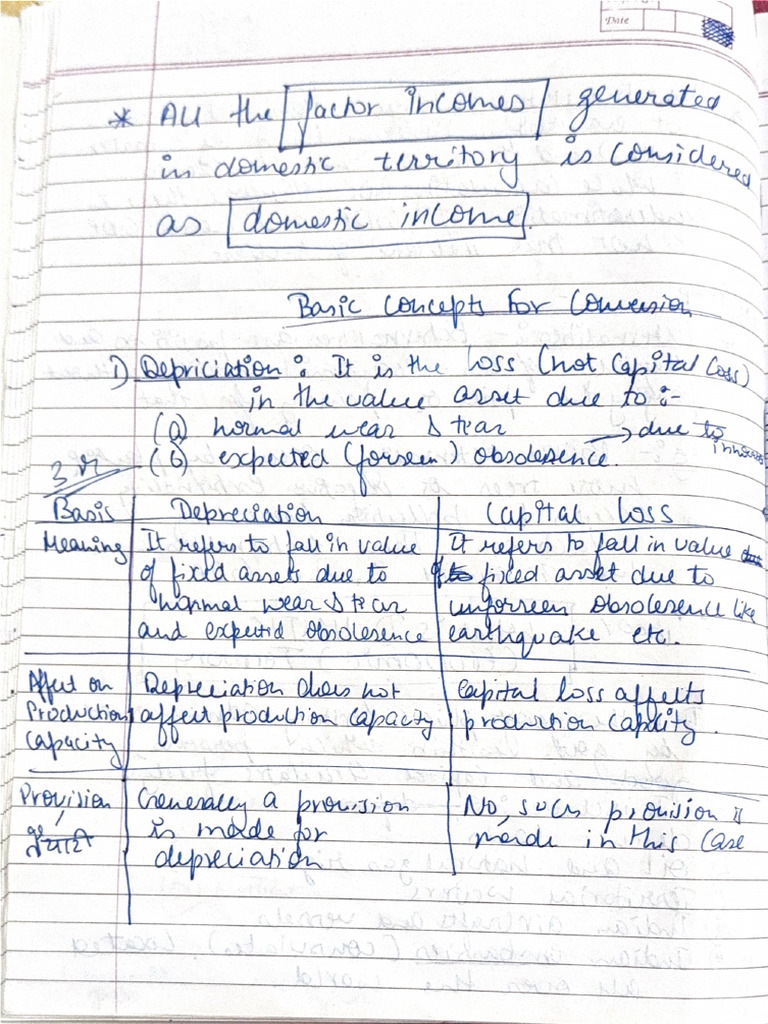 Date
* All the factor incomes generated
in domestic territory is considered
as domestic income.
Basic Concepts For Conversion
1) Depriciation : It is the loss (not Capital Loss)
in the value asset due to :-
(a) normal wear & tear
(b) expected (forseen) obsolesence. → due to
Basis | Depreciation | Capital loss
Meaning | It refers to fall in value | It refers to fall in value
of fixed assets due to | of fixed asset due to
normal wear & tear | unforseen obsolesence like
and expected obsolesence | earthquake etc.
Affect on | Depreciation does not | Capital loss affects
Production | affect production capacity | production capacity.
Capacity
Provision | Generally a provision | No, such provision is
तैयारी | is made for | made in this case
depreciation